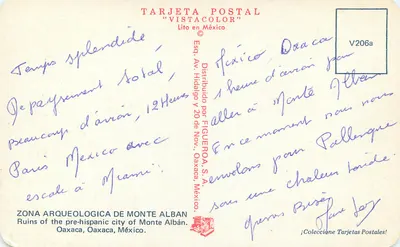 TARJETA POSTAL
"VISTACOLOR"
Lito en México
V206a
Temps splendide,
Depaysement total,
beaucoup d'avion, 12 Heures
Paris Mexico avec
escale à Miami.
ZONA ARQUEOLOGICA DE MONTE ALBAN
Ruins of the pre-hispanic city of Monte Albán.
Oaxaca, Oaxaca, México.
© Distribuido por FIGUEROA, S. A.
Esq. Av. Hidalgo y 20 de Nov., Oaxaca, México.
México Oaxaca
1 heure d'avion pour
aller à Monté Alban
En ce moment nous nous
envolons pour Pallenque
sous une chaleur torride.
Grosses Bises
¡Coleccione Tarjetas Postales!